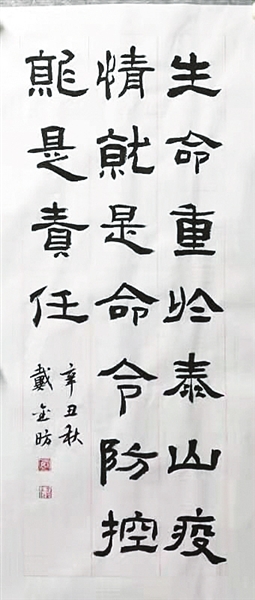 生命重於泰山疫
情就是命令防控
就是責任
辛丑秋
戴金昉